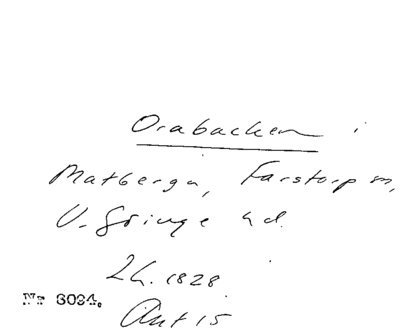 Orabacken i
Matberga, Farstorp sn,
V. Göinge hd.
Lh. 1828.
Nr 8024.
Akt 15